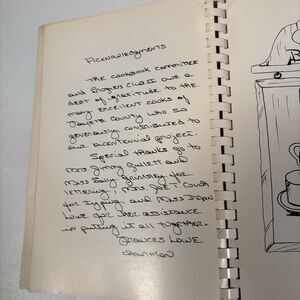 Acknowledgments
The cookbook committee
and Progress Club II owe a
debt of gratitude to the
many excellent cooks of
County who so
generously contributed to
our bicentennial project.
Special thanks go to
Mrs Jimmy Gullett and
Miss Sally for
lettering, Miss Couch
for typing, and Miss
Lowe for her assistance
in putting it all together.
Frances Lowe
Chairman